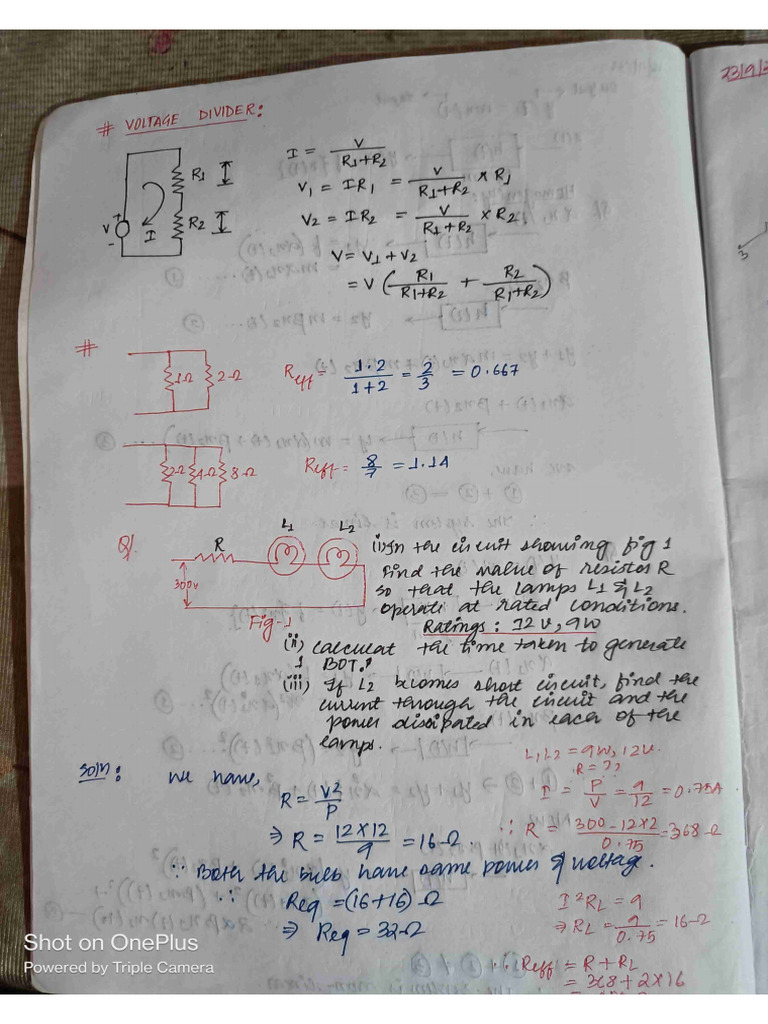 23/9/2
# VOLTAGE DIVIDER:
R1
R2
V
+
-
I
I = V / R1+R2
V1 = IR1 = V / R1+R2 × R1
V2 = IR2 = V / R1+R2 × R2
V = V1 + V2
= V ( R1 / R1+R2 + R2 / R1+R2 )
3
#
1Ω 2Ω
Reff = 1.2 / 1+2 = 2/3 = 0.667
2Ω 4Ω 8Ω
Reff = 8/7 = 1.14
Q1.
R L1 L2
300v
Fig-1
(i) In the circuit showing fig 1
find the value of resistor R
so that the lamps L1 & L2
operate at rated conditions.
Ratings: 12v, 9w
(ii) calculeat the time taken to generate
1 BOT.
(iii) If L2 becomes short circuit, find the
current through the circuit and the
power dissipated in each of the
lamps.
Soln: we have,
R = V²/P
⇒ R = 12×12 / 9 = 16Ω
∵ Both the bulb have same power & voltage.
∵ Req = (16+16)Ω
⇒ Req = 32Ω
L1, L2 = 9w, 12v.
R = ??
I = P/V = 9/12 = 0.75A
∵ R = 300-12×2 / 0.75 = 368Ω
I²RL = 9
⇒ RL = 9 / 0.75 = 16Ω
∵ Reff = R + RL
= 368 + 2×16
Shot on OnePlus
Powered by Triple Camera